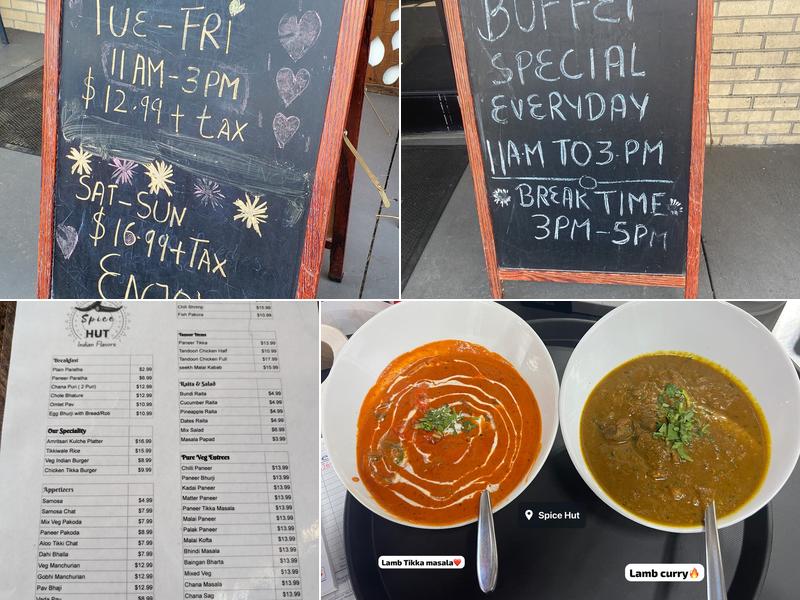 TUE-FRI
11 AM-3 PM
$ 12.99 + tax
SAT-SUN
$ 16.99+Tax
ENJOY
BUFFET
SPECIAL
EVERYDAY
11AM TO 3.PM
BREAK TIME
3PM-5PM
Spice
HUT
Indian Flavors
Breakfast
Plain Paratha $2.99
Paneer Paratha
Chana Puri ( 2 Puri) $12.99
Chole Bhature $12.99
Omlet Pav $10.99
Egg Bhurji with Bread/Roti $10.99
Our Speciality
Amritsari Kulche Platter $16.99
Tikkiwale Rice $15.99
Veg Indian Burger $8.99
Chicken Tikka Burger $9.99
Appetizers
Samosa $4.99
Samosa Chat $7.99
Mix Veg Pakoda $7.99
Paneer Pakoda $8.99
Aloo Tikki Chat $7.99
Dahi Bhalla $7.99
Veg Manchurian $12.99
Gobhi Manchurian $12.99
Pav Bhaji $12.99
Vada Pav
Chili Shrimp $15.99
Fish Pakora $10.99
Paneer Tikka $13.99
Tandoori Chicken Half $10.99
Tandoori Chicken Full $17.99
seekh Malai Kabab $15.99
Raita & Salad
Bundi Raita $4.99
Cucumber Raita $4.99
Pineapple Raita $4.99
Dates Raita $4.99
Mix Salad $6.99
Masala Papad $3.99
Pure Veg Entrees
Chilli Paneer $13.99
Paneer Bhurji $13.99
Kadai Paneer $13.99
Matter Paneer $13.99
Paneer Tikka Masala $13.99
Malai Paneer $13.99
Palak Paneer $13.99
Malai Kofta $13.99
Bhindi Masala $13.99
Baingan Bharta $13.99
Mixed Veg $13.99
Chana Masala $13.99
Chana Sag $13.99
Spice Hut
Lamb Tikka masala❤️
Lamb curry🔥